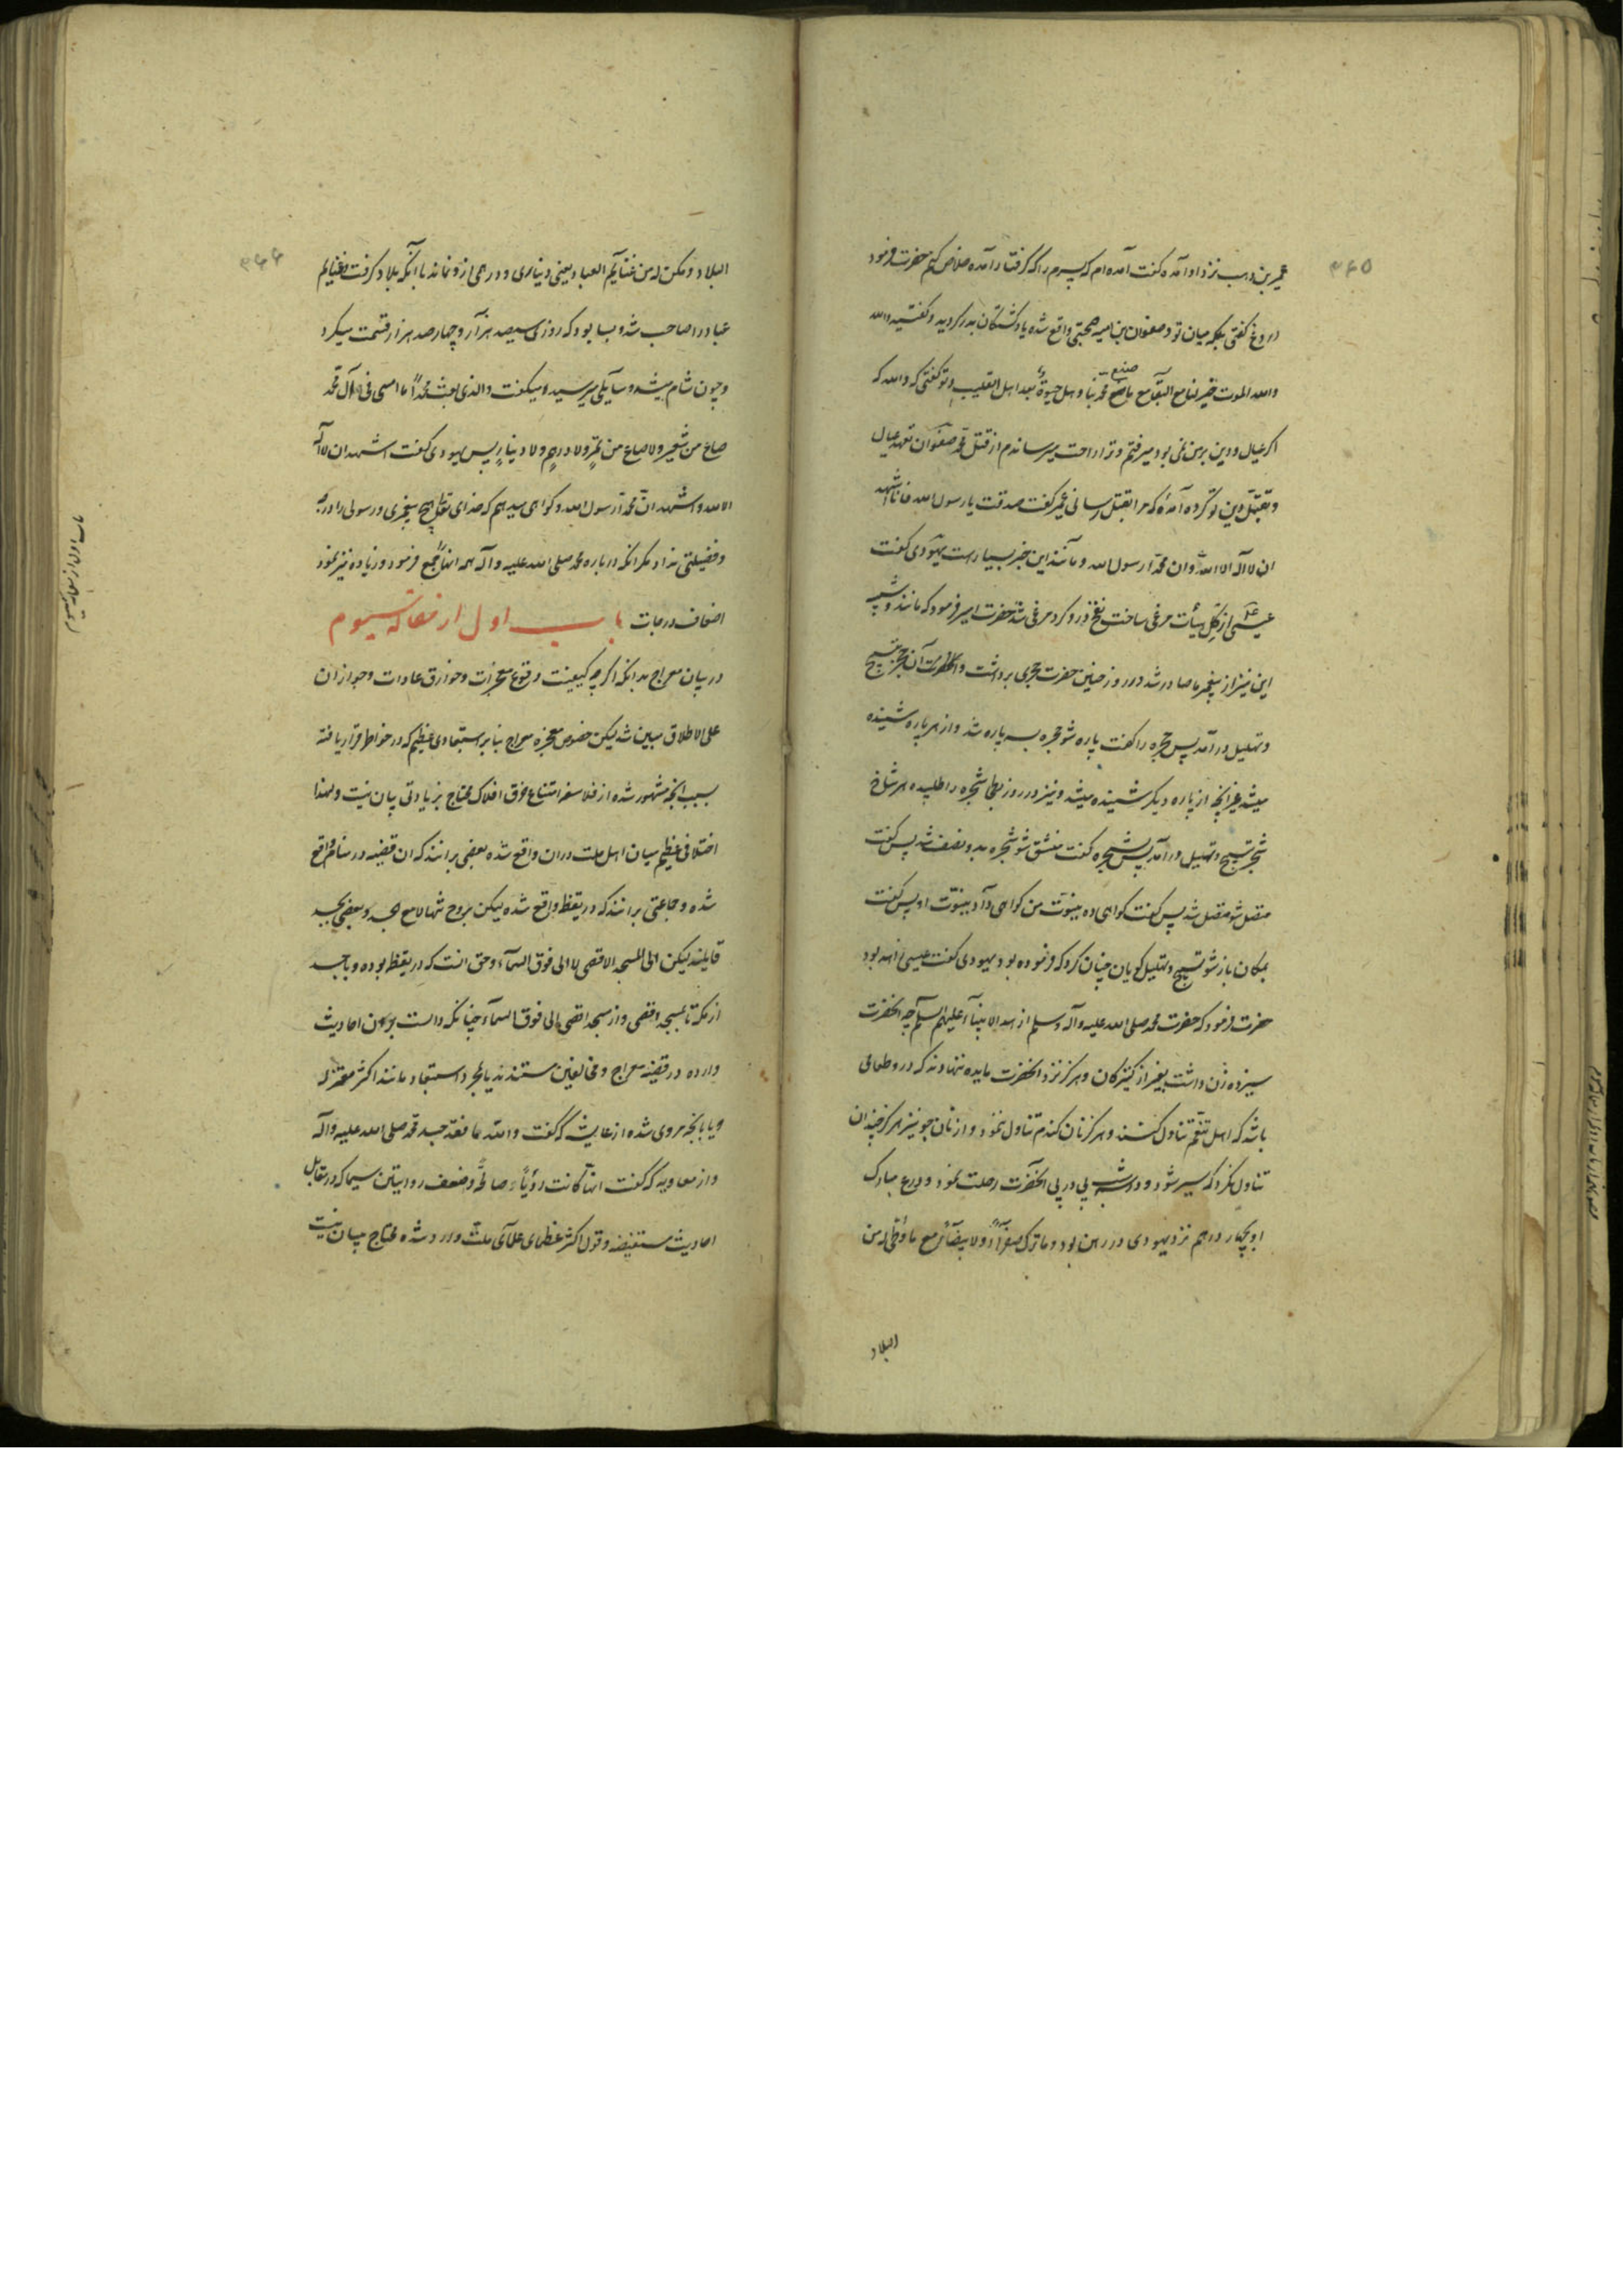 ۳۶۵
عمیر بن وهب نزد او آمده کفت آمده ام که پسرم را که کرفتار آمده خلاص کنم حضرت فرمود
دروغ کفتی بلکه میان تو و صفوان بن امیه صحبتی واقع شده یاد کشتکان بدر کردید و کفتید والله
والله الموت خیر لنا مع البقاء مع ما صنع محمد بنا و هل حیوة بعد اهل القلیب و تو کفتی که والله که
صنع
اکر عیال و دین بر من نمی بود میرفتم و ترا راحت میرساندم از قتل محمد صفوان تعهد عیال
و تقبّل دین تو کرده آمدهٔ که مرا بقتل رسانی عمیر کفت صدقت یا رسول الله فانا اشهد
ان لا آله الا الله و ان محمدا رسول الله و مانند این خبر بسیار است یهودی کفت
عیسی از کل هیأت مرغی ساخت نفخ در و کرد مرغی شد حضرت امیر فرمود که مانند و شبیه
این نیز از پیغمبر ما صادر شد در روز حنین حضرت حجری برداشت و آن حجر تسبیح
و تهلیل در آمد پس حجره را کفت پاره شو حجره بسه پاره شد و از هر پاره شنیده
میشد غیر آنچه از پاره دیکر شنیده میشد و نیز در روز بطحا شجره را طلبیده هر شاخ
شجر تسبیح و تهلیل در آمد پس بشجره کفت منشق شو شجره بدو نصف شد پس کفت
متصل شو متصل شد پس کفت کواهی ده بنبوت من کواهی داد بنبوت او پس کفت
بمکان باز شو تسبیح و تهلیل کویان چنان کرد که فرموده بود یهودی کفت عیسی زاهد بود
حضرت فرمود که حضرت محمد صلی الله علیه و آله و سلم ازهد الانبیآء علیهم السلام چه آنحضرت
سیزده زن داشت بغیر از کنیزکان و هرکز نزد آنحضرت مایده ننهادند که درو طعامی
باشد که اهل تنعّم تناول کنند و هرکز نان کندم تناول ننمود و از نان جو نیز هرکز چندان
تناول نکرد که سیر شود و دو سه شب پی در پی آنحضرت رحلت نمود و درع مبارک
او بچهار درهم نزد یهودی در رهن بود و ما ترک صفرآء و لا بیضآء مع ما وُطّئ له من
البلاد
۳۶۶
البلاد و مکن له من غنآیم العباد یعنی دیناری و درهمی ازو نماند با آنکه بلاد کرفت و غنایم
عباد را صاحب شد و بسا بود که روزی سیصد هزار و چهار صد هزار قسمت میکرد
و چون شام میشد و سآیلی میرسید و میکفت و الذی بعث محمداً ما امسی فی آل محمد
صاع من شعیر و لا صاع من تمرٍ و لا درهمٍ و لا دینارٍ پس یهودی کفت اشهد ان لا آله
الا الله و اشهد ان محمدا رسول الله و کواهی میدهم که خدای تعالی هیچ پیغمبری و رسولی را درجه
و فضیلتی نداد مکر آنکه در باره محمد صلی الله علیه و آله همه آنها جمع فرمود و زیاده نیز نمود
اضعاف درجات باب اول از مقاله سیوم
در بیان معراج بدانکه اکرچه کیفیت وقوع معجزات و خوارق عادات و جواز ان
علی الاطلاق مبین شد لیکن خصوص معجزه معراج بنا بر استبعادی عظیم که در خواطر قرار یافته
بسبب آنچه مشهور شده از فلاسفه امتناع خرق افلاک محتاج بزیادتی بیان نیست و لهذا
اختلافی عظیم میان اهل ملت دران واقع شده بعضی برانند که ان قضیه در منام واقع
شده و جماعتی برانند که در یقظه واقع شده لیکن بروح تنها لا مع الجسد و بعضی بجسد
قایلند لیکن الی المسجد الاقصی لا الی فوق السمآء و حق انست که در یقظه بوده و با جسد
از مکه تا بمسجد اقصی و از مسجد اقصی الی فوق السمآء چنانکه دالست برین احادیث
وارده در قضیه معراج و مخالفین مستندند یا بمجرد استبعاد مانند اکثر معتزله
و یا بانچه مروی شده از عایشه که کفت والله ما فقد جسد محمد صلی الله علیه و آله
و از معاویه که کفت انها کانت رؤیاً صالحةً و ضعف روایتین سیما که در مقابل
احادیث مستفیضه و قول اکثر عظمای علمآی ملت وارد شده محتاج ببیان نیست